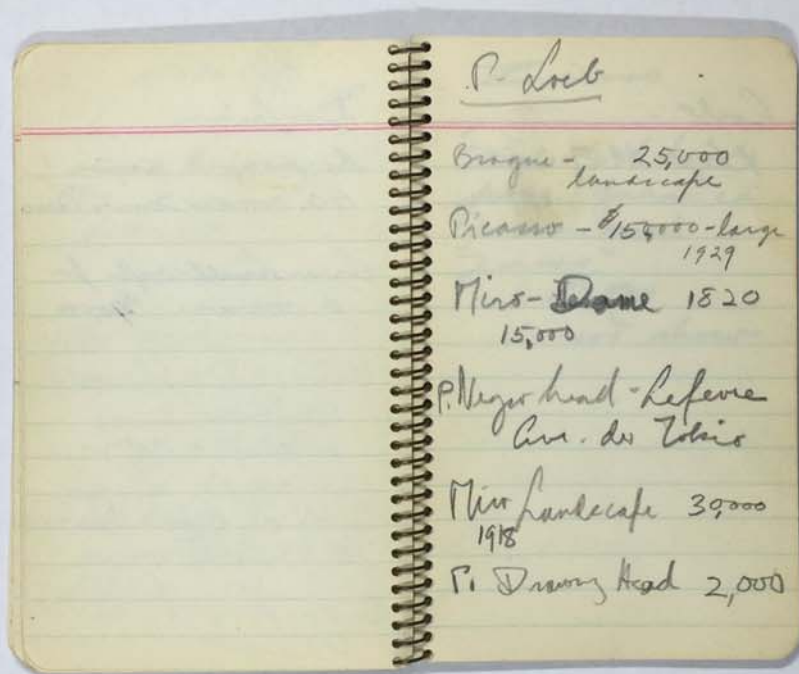 P. Loeb
Braque - 25,000
landscape
Picasso - $150,000 - large
1929
Miro - Dame 1820
15,000
P. Negro head - Lefevre
Ave. de Tokio
Miro Landscape 30,000
1918
P. Drawing Head 2,000